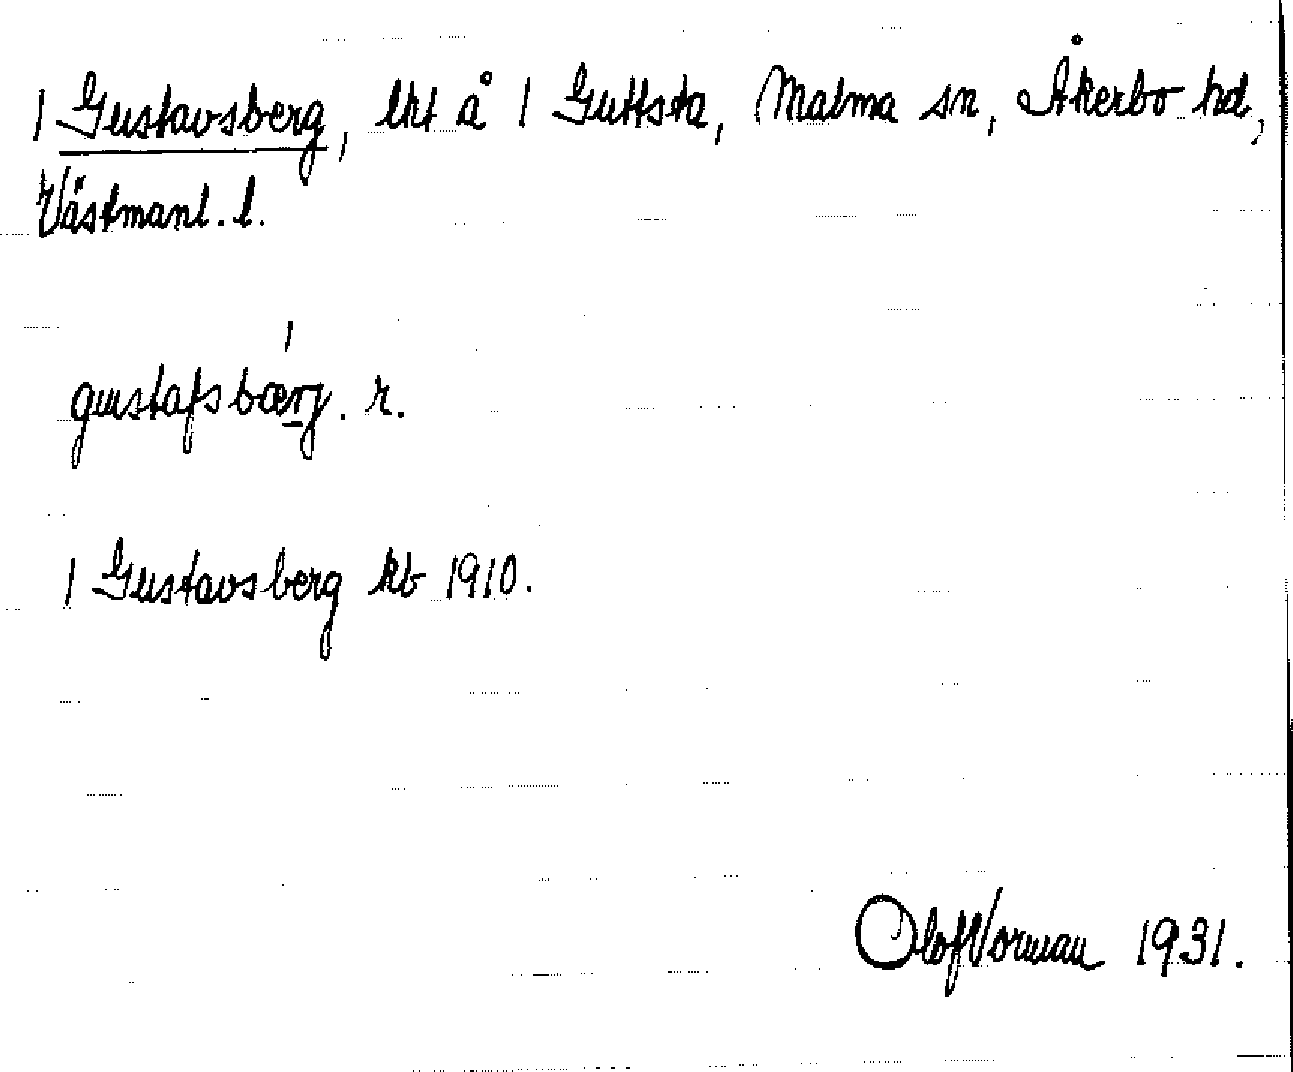 1 Gustavsberg, lht å 1 Guttsta, Malma sn, Åkerbo hd,
Västmanl. l.
gustafsbærg. r.
1 Gustavsberg kb 1910.
Olof Vorman 1931.